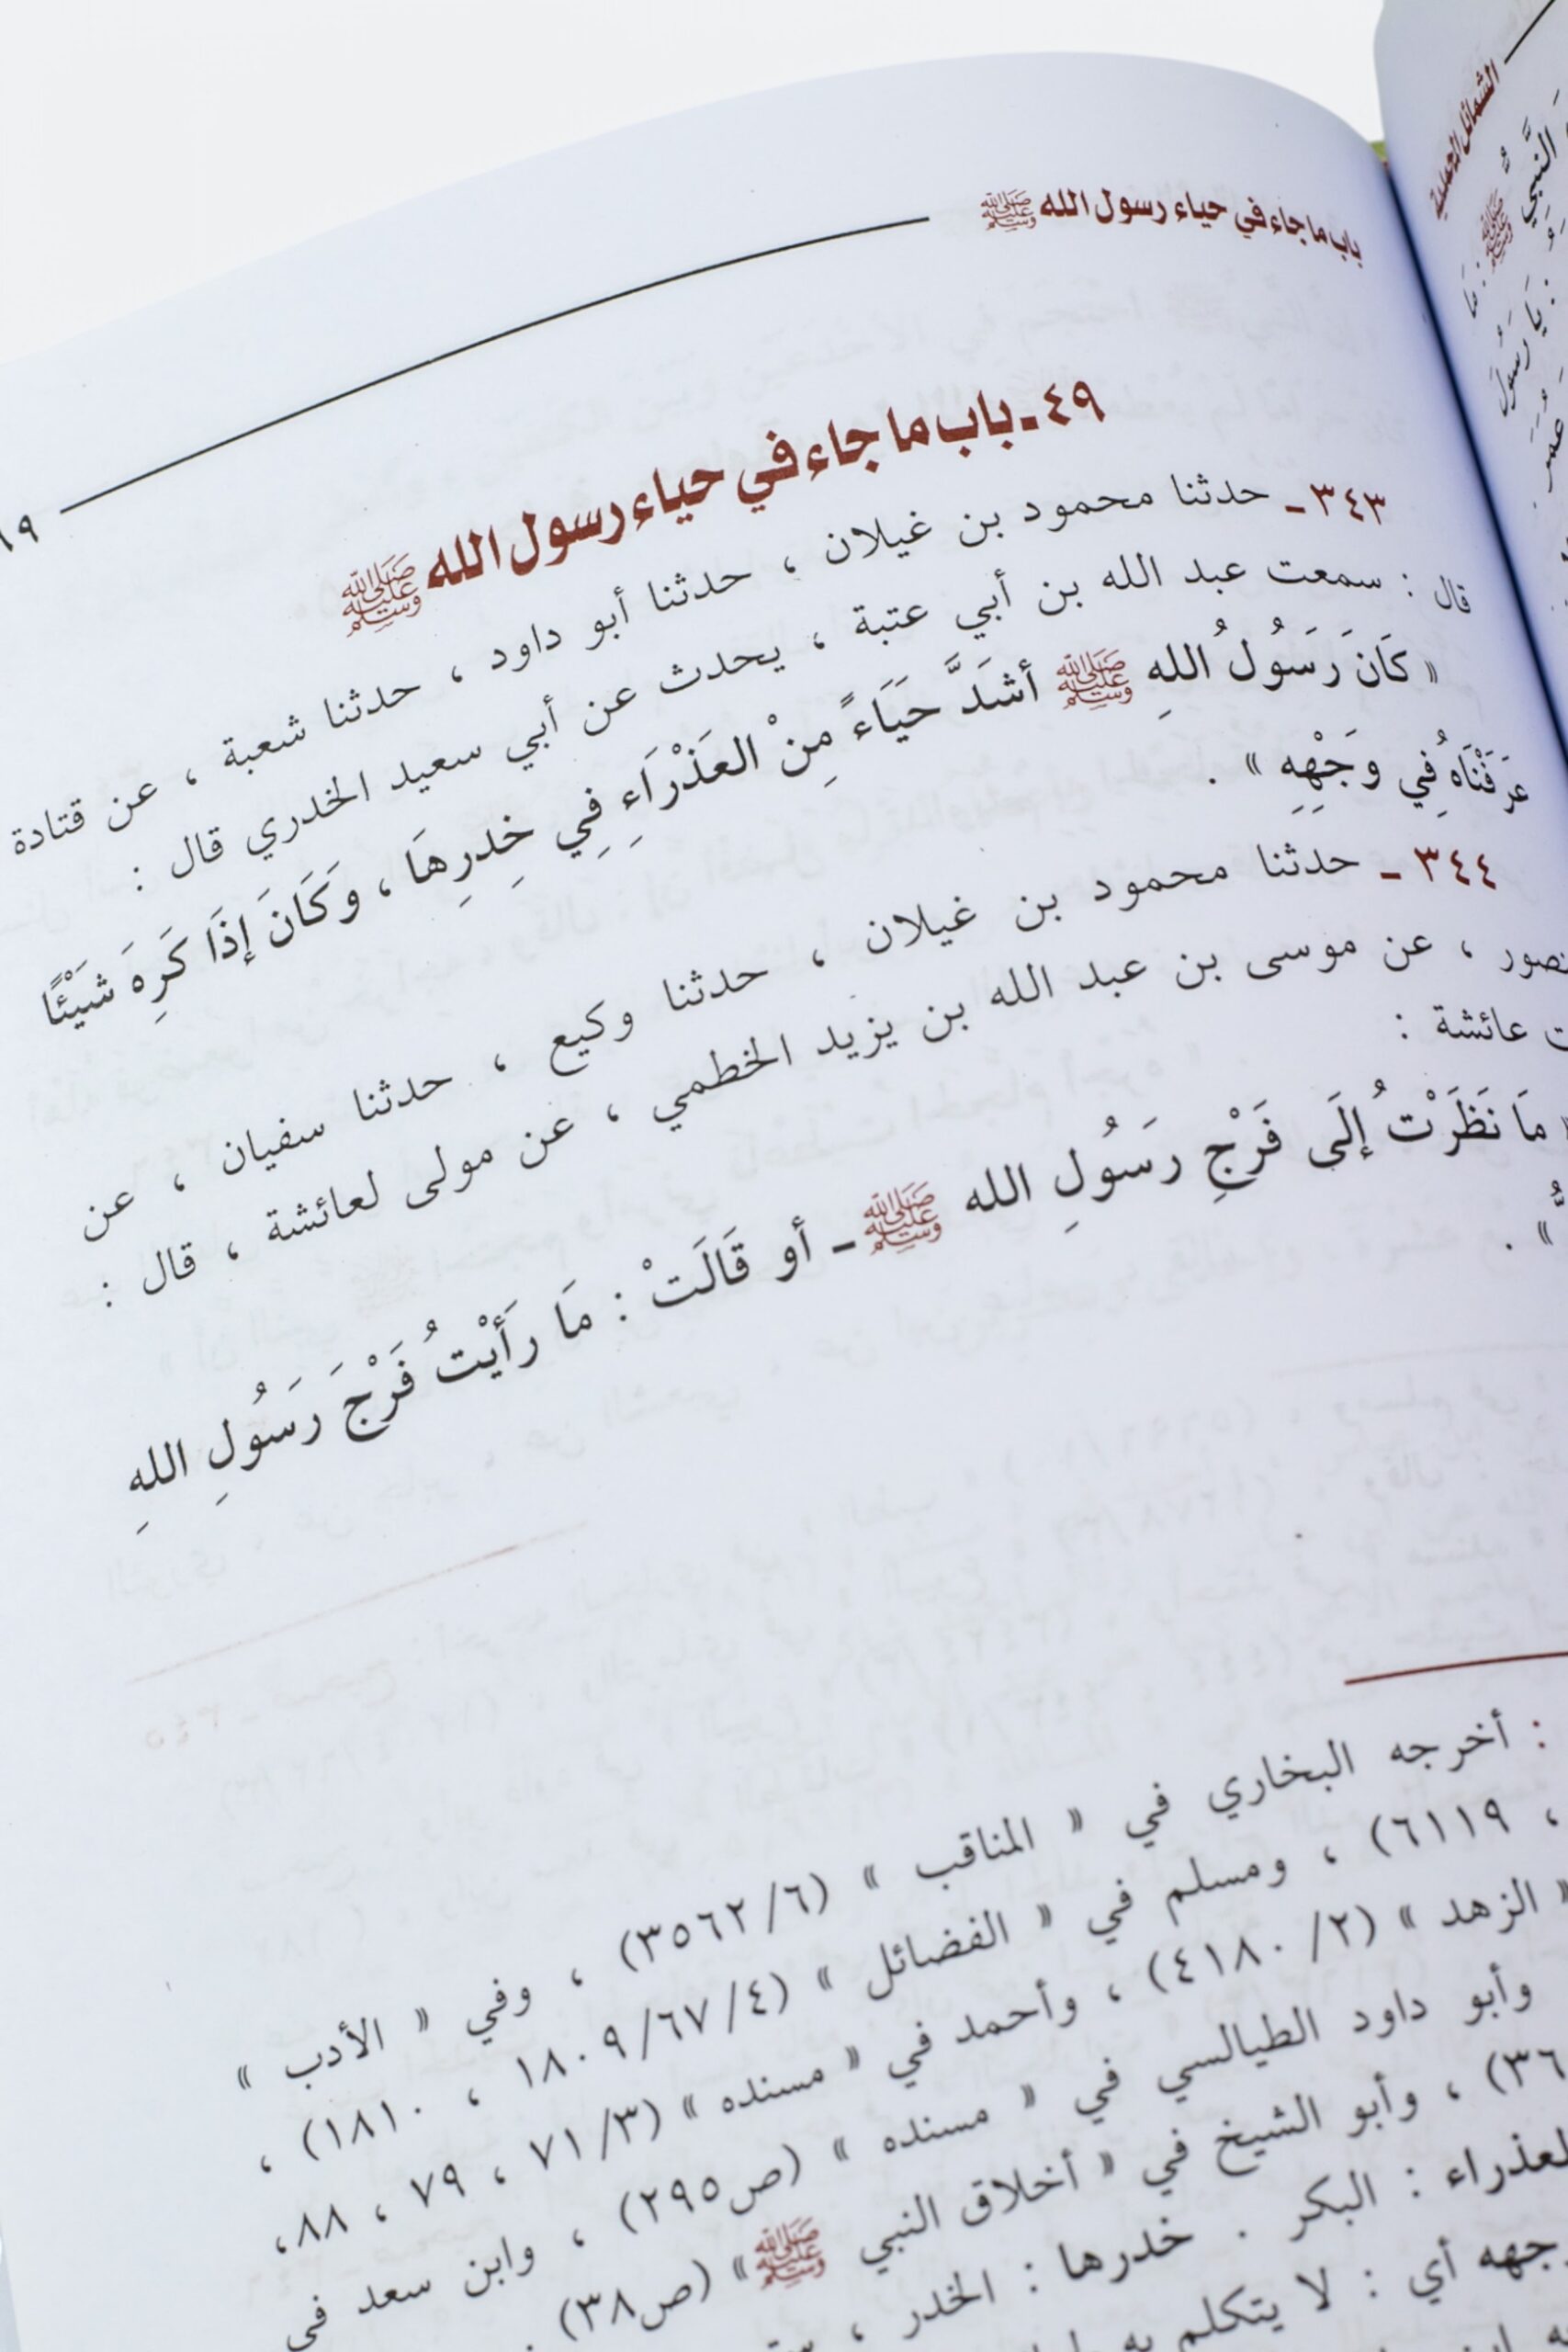 باب ما جاء في حياء رسول الله ﷺ
٤٩ـ باب ما جاء في حياء رسول الله ﷺ
٣٤٣ـ حدثنا محمود بن غيلان ، حدثنا أبو داود ، حدثنا شعبة ، عن قتادة
قال : سمعت عبد الله بن أبي عتبة ، يحدث عن أبي سعيد الخدري قال :
« كَانَ رَسُولُ اللهِ ﷺ أشَدَّ حَيَاءً مِنْ العَذْرَاءِ فِي خِدرِهَا ، وَكَانَ إذَا كَرِهَ شَيْئًا
عَرَفْنَاهُ فِي وَجْهِهِ » .
٣٤٤ ـ حدثنا محمود بن غيلان ، حدثنا وكيع ، حدثنا سفيان ، عن
، عن موسى بن عبد الله بن يزيد الخطمي ، عن مولى لعائشة ، قال :
عائشة :
« مَا نَظَرْتُ إلَى فَرْجِ رَسُولِ الله ﷺ ـ أو قَالَتْ : مَا رَأَيْتُ فَرْجَ رَسُولِ اللهِ
» .
: أخرجه البخاري في « المناقب » (٣٥٦٢/٦) ، وفي « الأدب »
، ٦١١٩) ، ومسلم في « الفضائل » (١٨٠٩/٦٧/٤ ، ١٨١٠) ،
« الزهد » (٤١٨٠/٢) ، وأحمد في « مسنده » (٧١/٣ ، ٧٩ ، ٨٨،
وأبو داود الطيالسي في « مسنده » (ص٢٩٥) ، وابن سعد في
، وأبو الشيخ في « أخلاق النبي ﷺ » (ص٣٨) .
العذراء : البكر . خدرها : الخدر ،
أي : لا يتكلم به
الشمائل المحمدية
النَّبِيُّ
ﷺ : مَا
: يَا رَسُولَ
عُمَرَ